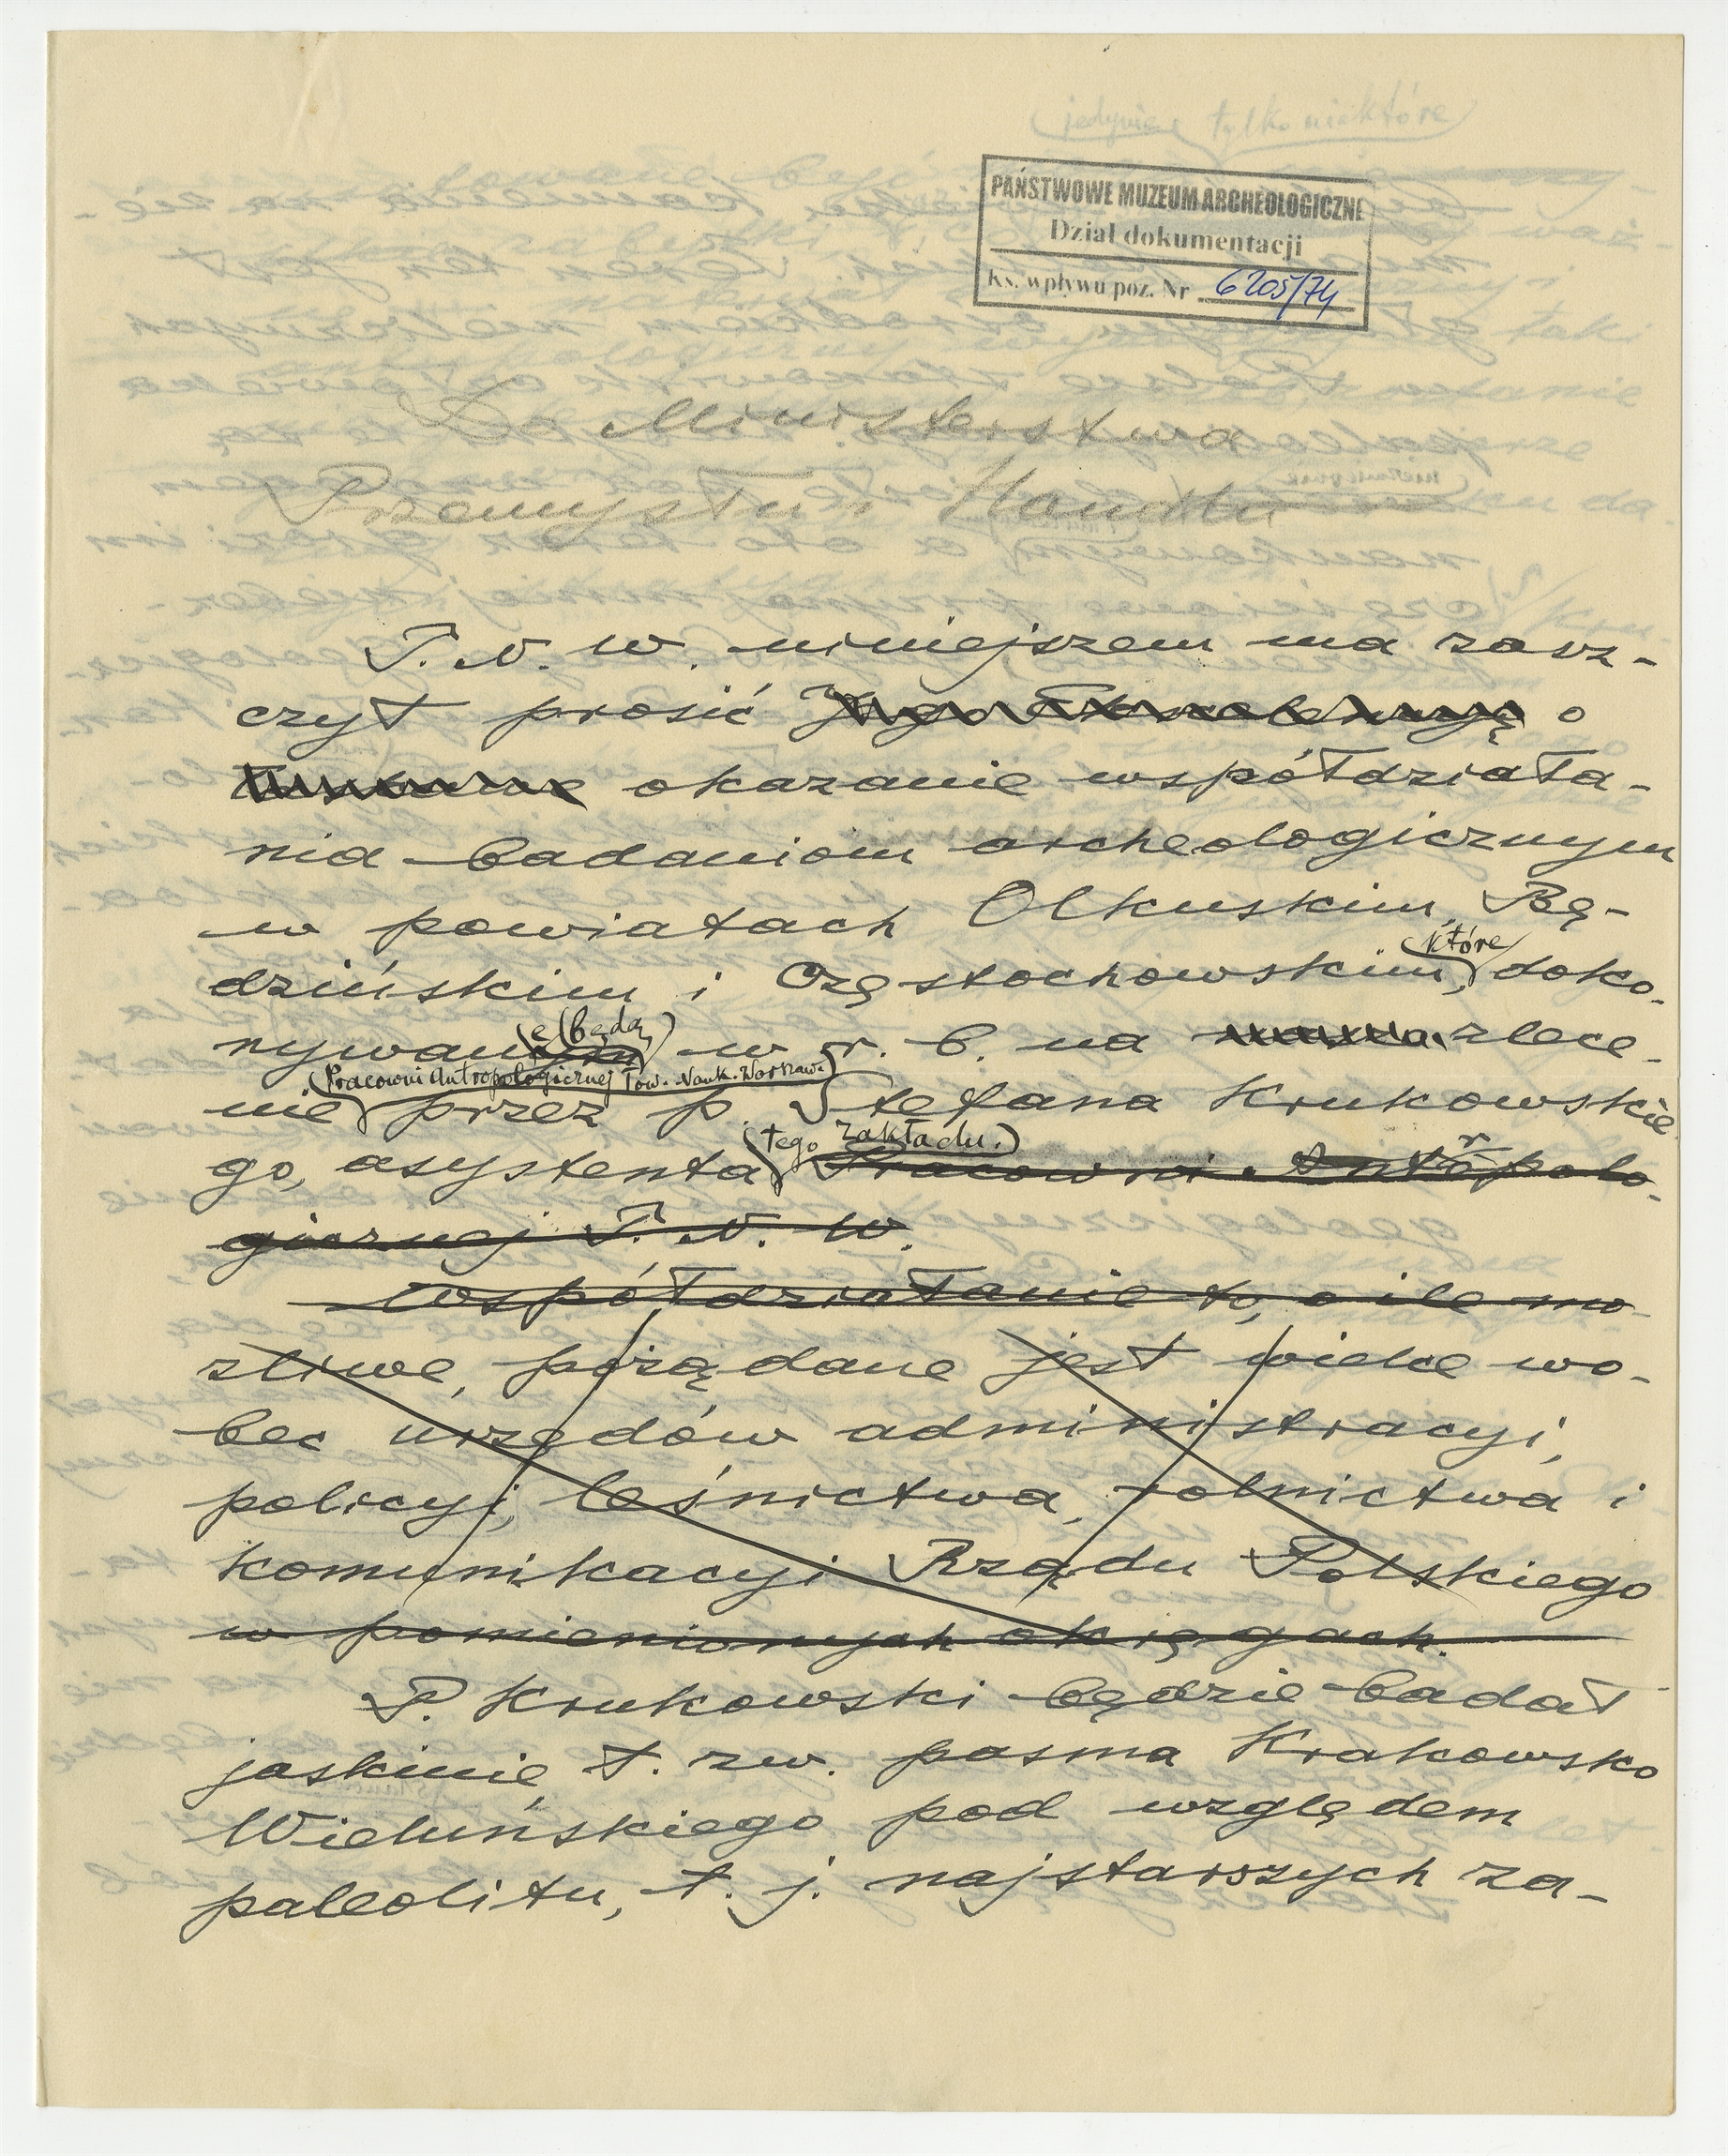 jedynie tylko niektóre
PAŃSTWOWE MUZEUM ARCHEOLOGICZNE
Dział dokumentacji
Ks. wpływu poz. Nr 6205/74
Do Ministerstwa
Przemysłu i Handlu
T. N. W. niniejszem ma zasz-
czyt prosić Jego Ekscelencyję o
okazanie współdziała-
nia badaniom archeologicznym
w powiatach Olkuskim, Bę-
które
dzińskim i Częstochowskim, doko-
e będą
nywanym w r. b. na zlece-
Pracowni Antropologicznej Tow. Nauk. Warszaw.
nie przez p. Stefana Krukowskie
tego zakładu.
go, asystenta Pracowni Antropolo-
gicznej T. N. W.
Współdziałanie to, o ile mo-
żliwe, pożądane jest wielce wo-
bec urzędów administracyi,
policyi, leśnictwa, rolnictwa i
komunikacyi Rządu Polskiego
w pomienionych okręgach.
P. Krukowski będzie badał
jaskinie, t. zw. pasma Krakowsko
Wieluńskiego pod względem
paleolitu, t. j. najstarszych za-